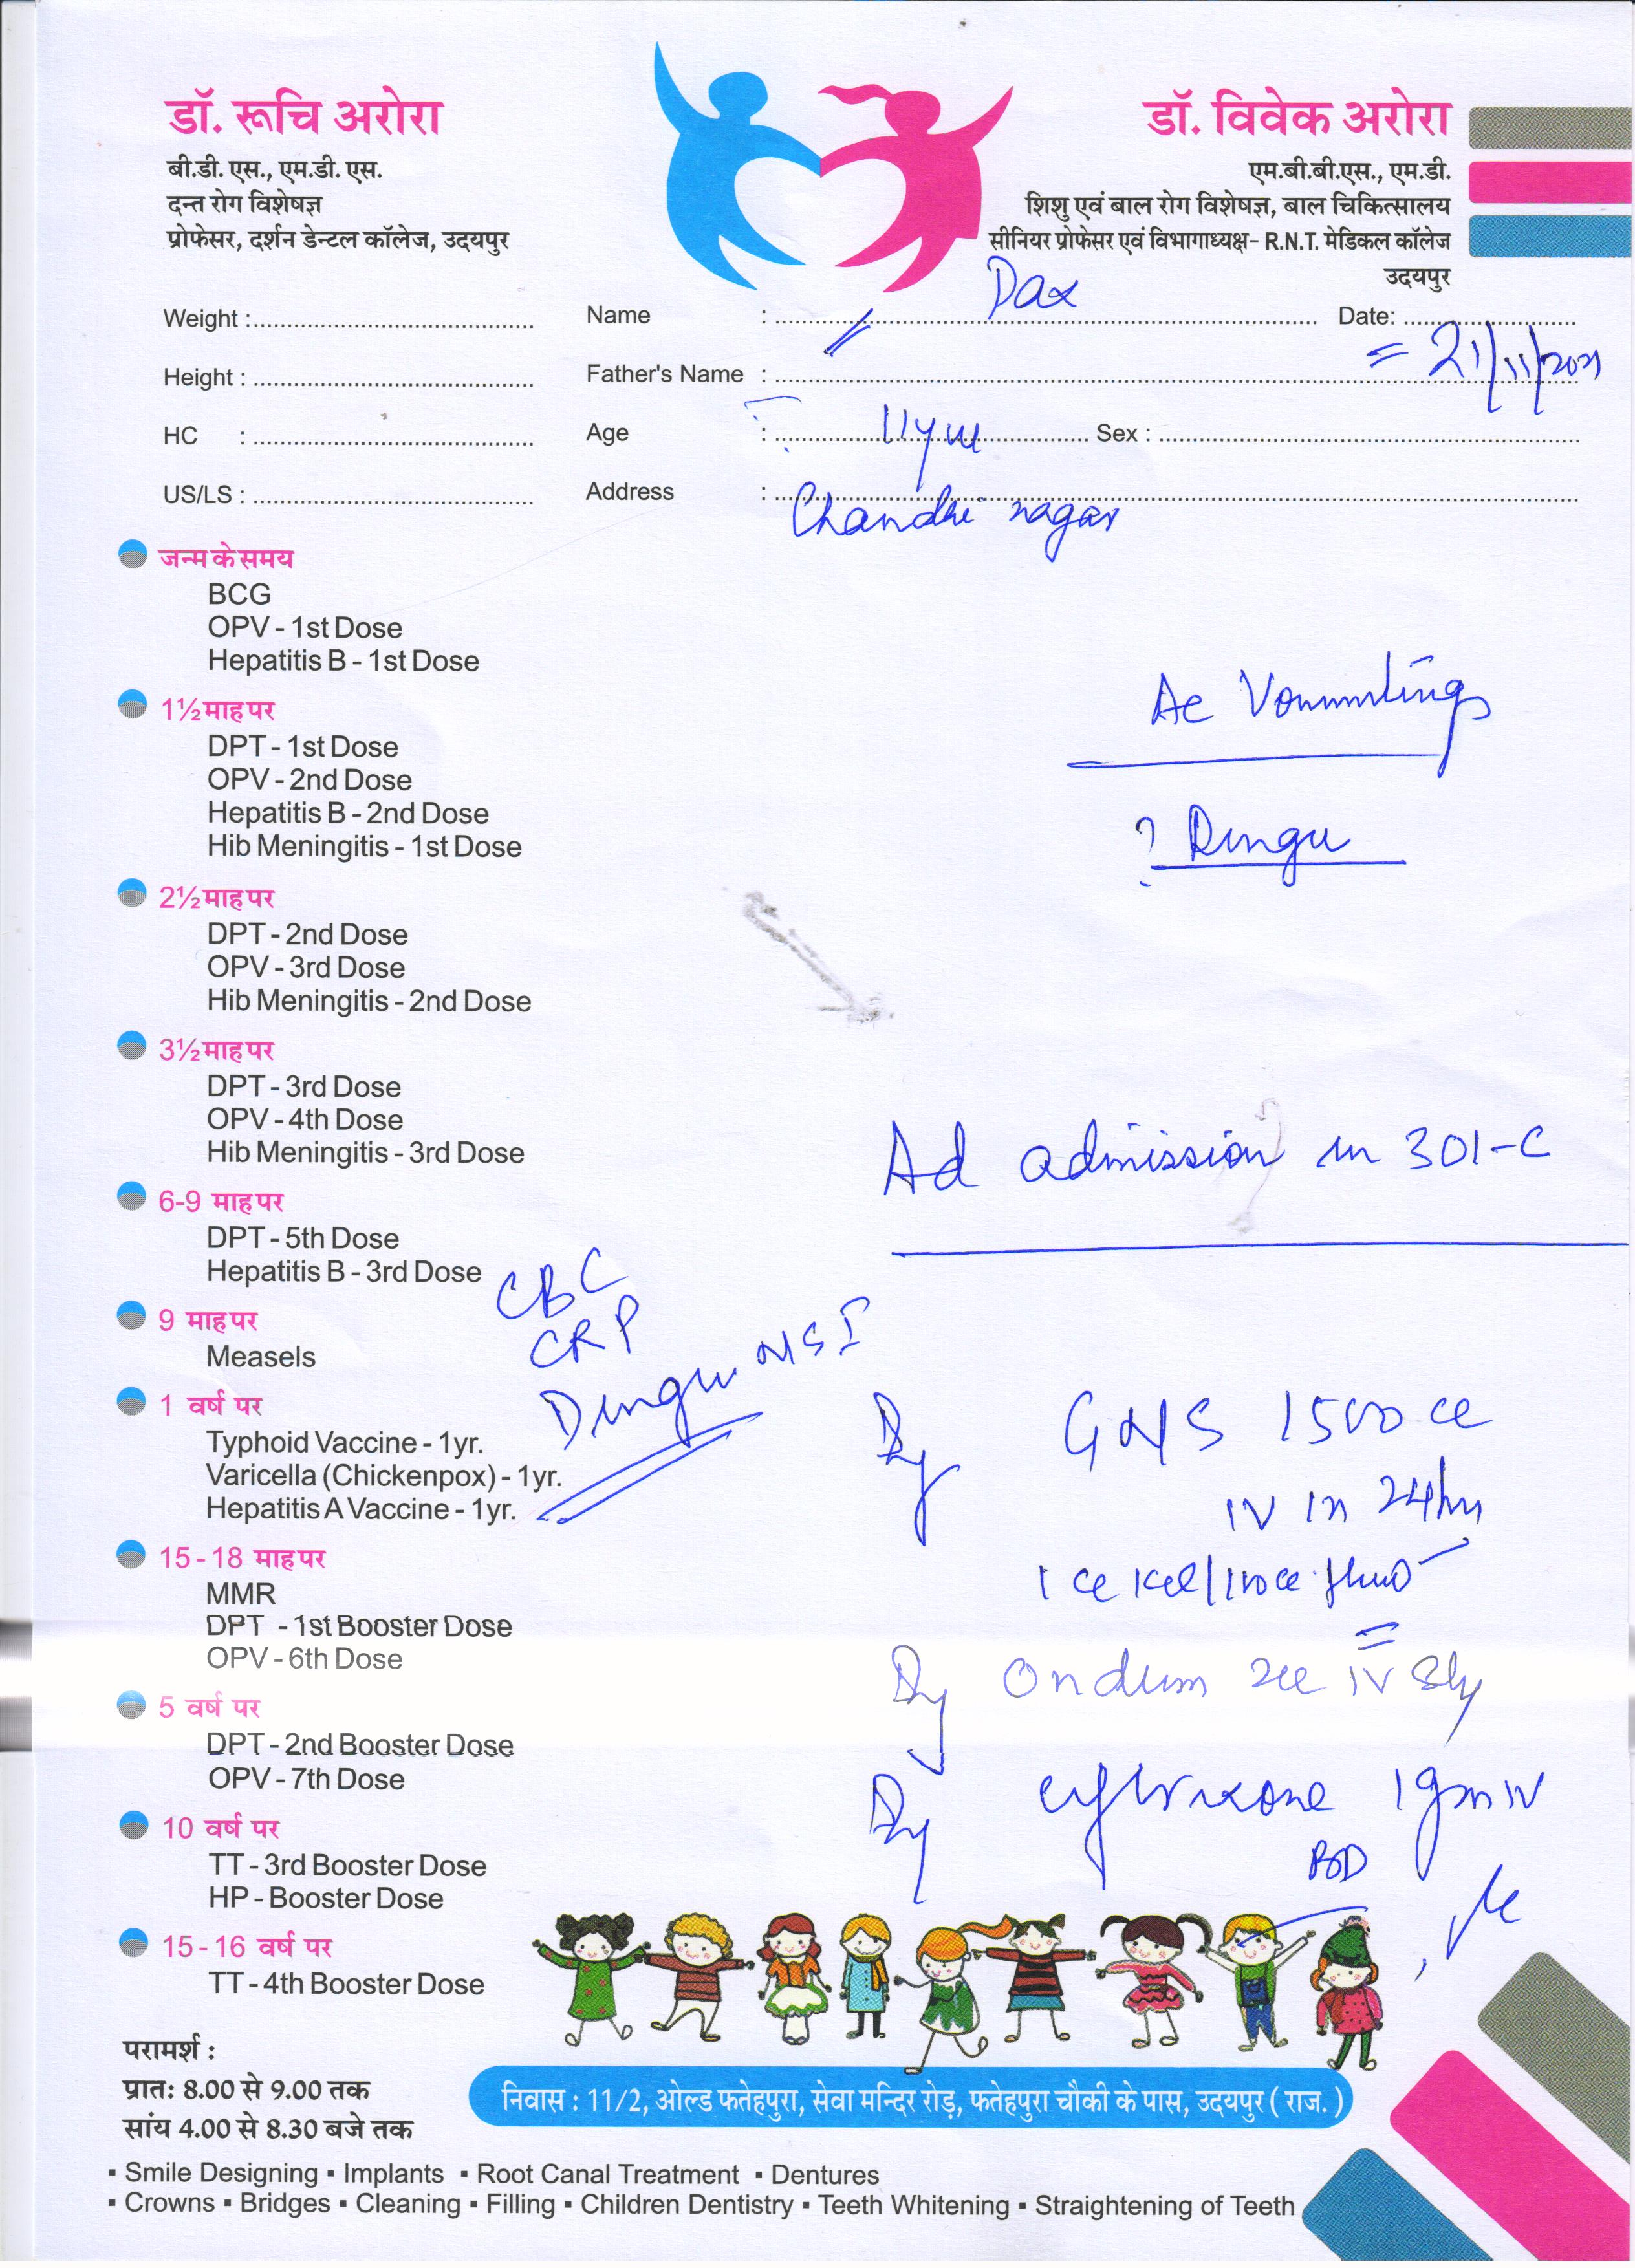 डॉ. रूचि अरोरा
बी.डी. एस., एम.डी. एस.
दन्त रोग विशेषज्ञ
प्रोफेसर, दर्शन डेन्टल कॉलेज, उदयपुर
डॉ. विवेक अरोरा
एम.बी.बी.एस., एम.डी.
शिशु एवं बाल रोग विशेषज्ञ, बाल चिकित्सालय
सीनियर प्रोफेसर एवं विभागाध्यक्ष- R.N.T. मेडिकल कॉलेज
उदयपुर
Weight :
Name : Dax
Date: 21/11/2021
Height :
Father's Name :
HC :
Age : 11 yrs
Sex :
US/LS :
Address : Chandri nagar
जन्म के समय
BCG
OPV - 1st Dose
Hepatitis B - 1st Dose
1½ माह पर
DPT - 1st Dose
OPV - 2nd Dose
Hepatitis B - 2nd Dose
Hib Meningitis - 1st Dose
2½ माह पर
DPT - 2nd Dose
OPV - 3rd Dose
Hib Meningitis - 2nd Dose
3½ माह पर
DPT - 3rd Dose
OPV - 4th Dose
Hib Meningitis - 3rd Dose
6-9 माह पर
DPT - 5th Dose
Hepatitis B - 3rd Dose
9 माह पर
Measels
1 वर्ष पर
Typhoid Vaccine - 1yr.
Varicella (Chickenpox) - 1yr.
Hepatitis A Vaccine - 1yr.
15 - 18 माह पर
MMR
DPT - 1st Booster Dose
OPV - 6th Dose
5 वर्ष पर
DPT - 2nd Booster Dose
OPV - 7th Dose
10 वर्ष पर
TT - 3rd Booster Dose
HP - Booster Dose
15 - 16 वर्ष पर
TT - 4th Booster Dose
Ac Vommtings
? Dengu
Ad admission in 301-C
CBC
CRP
Dengu NS I
GNS 1500 cc
IV in 24 hrs
1 cc Kcl/100 cc fluid
Ondem 2cc IV 8ly
ceftrixone 1gm IV
BD
परामर्श :
प्रातः 8.00 से 9.00 तक
सांय 4.00 से 8.30 बजे तक
निवास : 11/2, ओल्ड फतेहपुरा, सेवा मन्दिर रोड़, फतेहपुरा चौकी के पास, उदयपुर ( राज. )
▪ Smile Designing ▪ Implants ▪ Root Canal Treatment ▪ Dentures
▪ Crowns ▪ Bridges ▪ Cleaning ▪ Filling ▪ Children Dentistry ▪ Teeth Whitening ▪ Straightening of Teeth